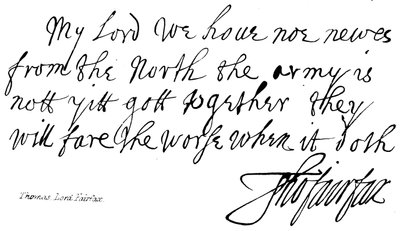 My Lord We houe noe newes
from the North the army is
nott yitt gott together they
will fare the worse when it doth
Tho fairfax
Thomas Lord Fairfax.